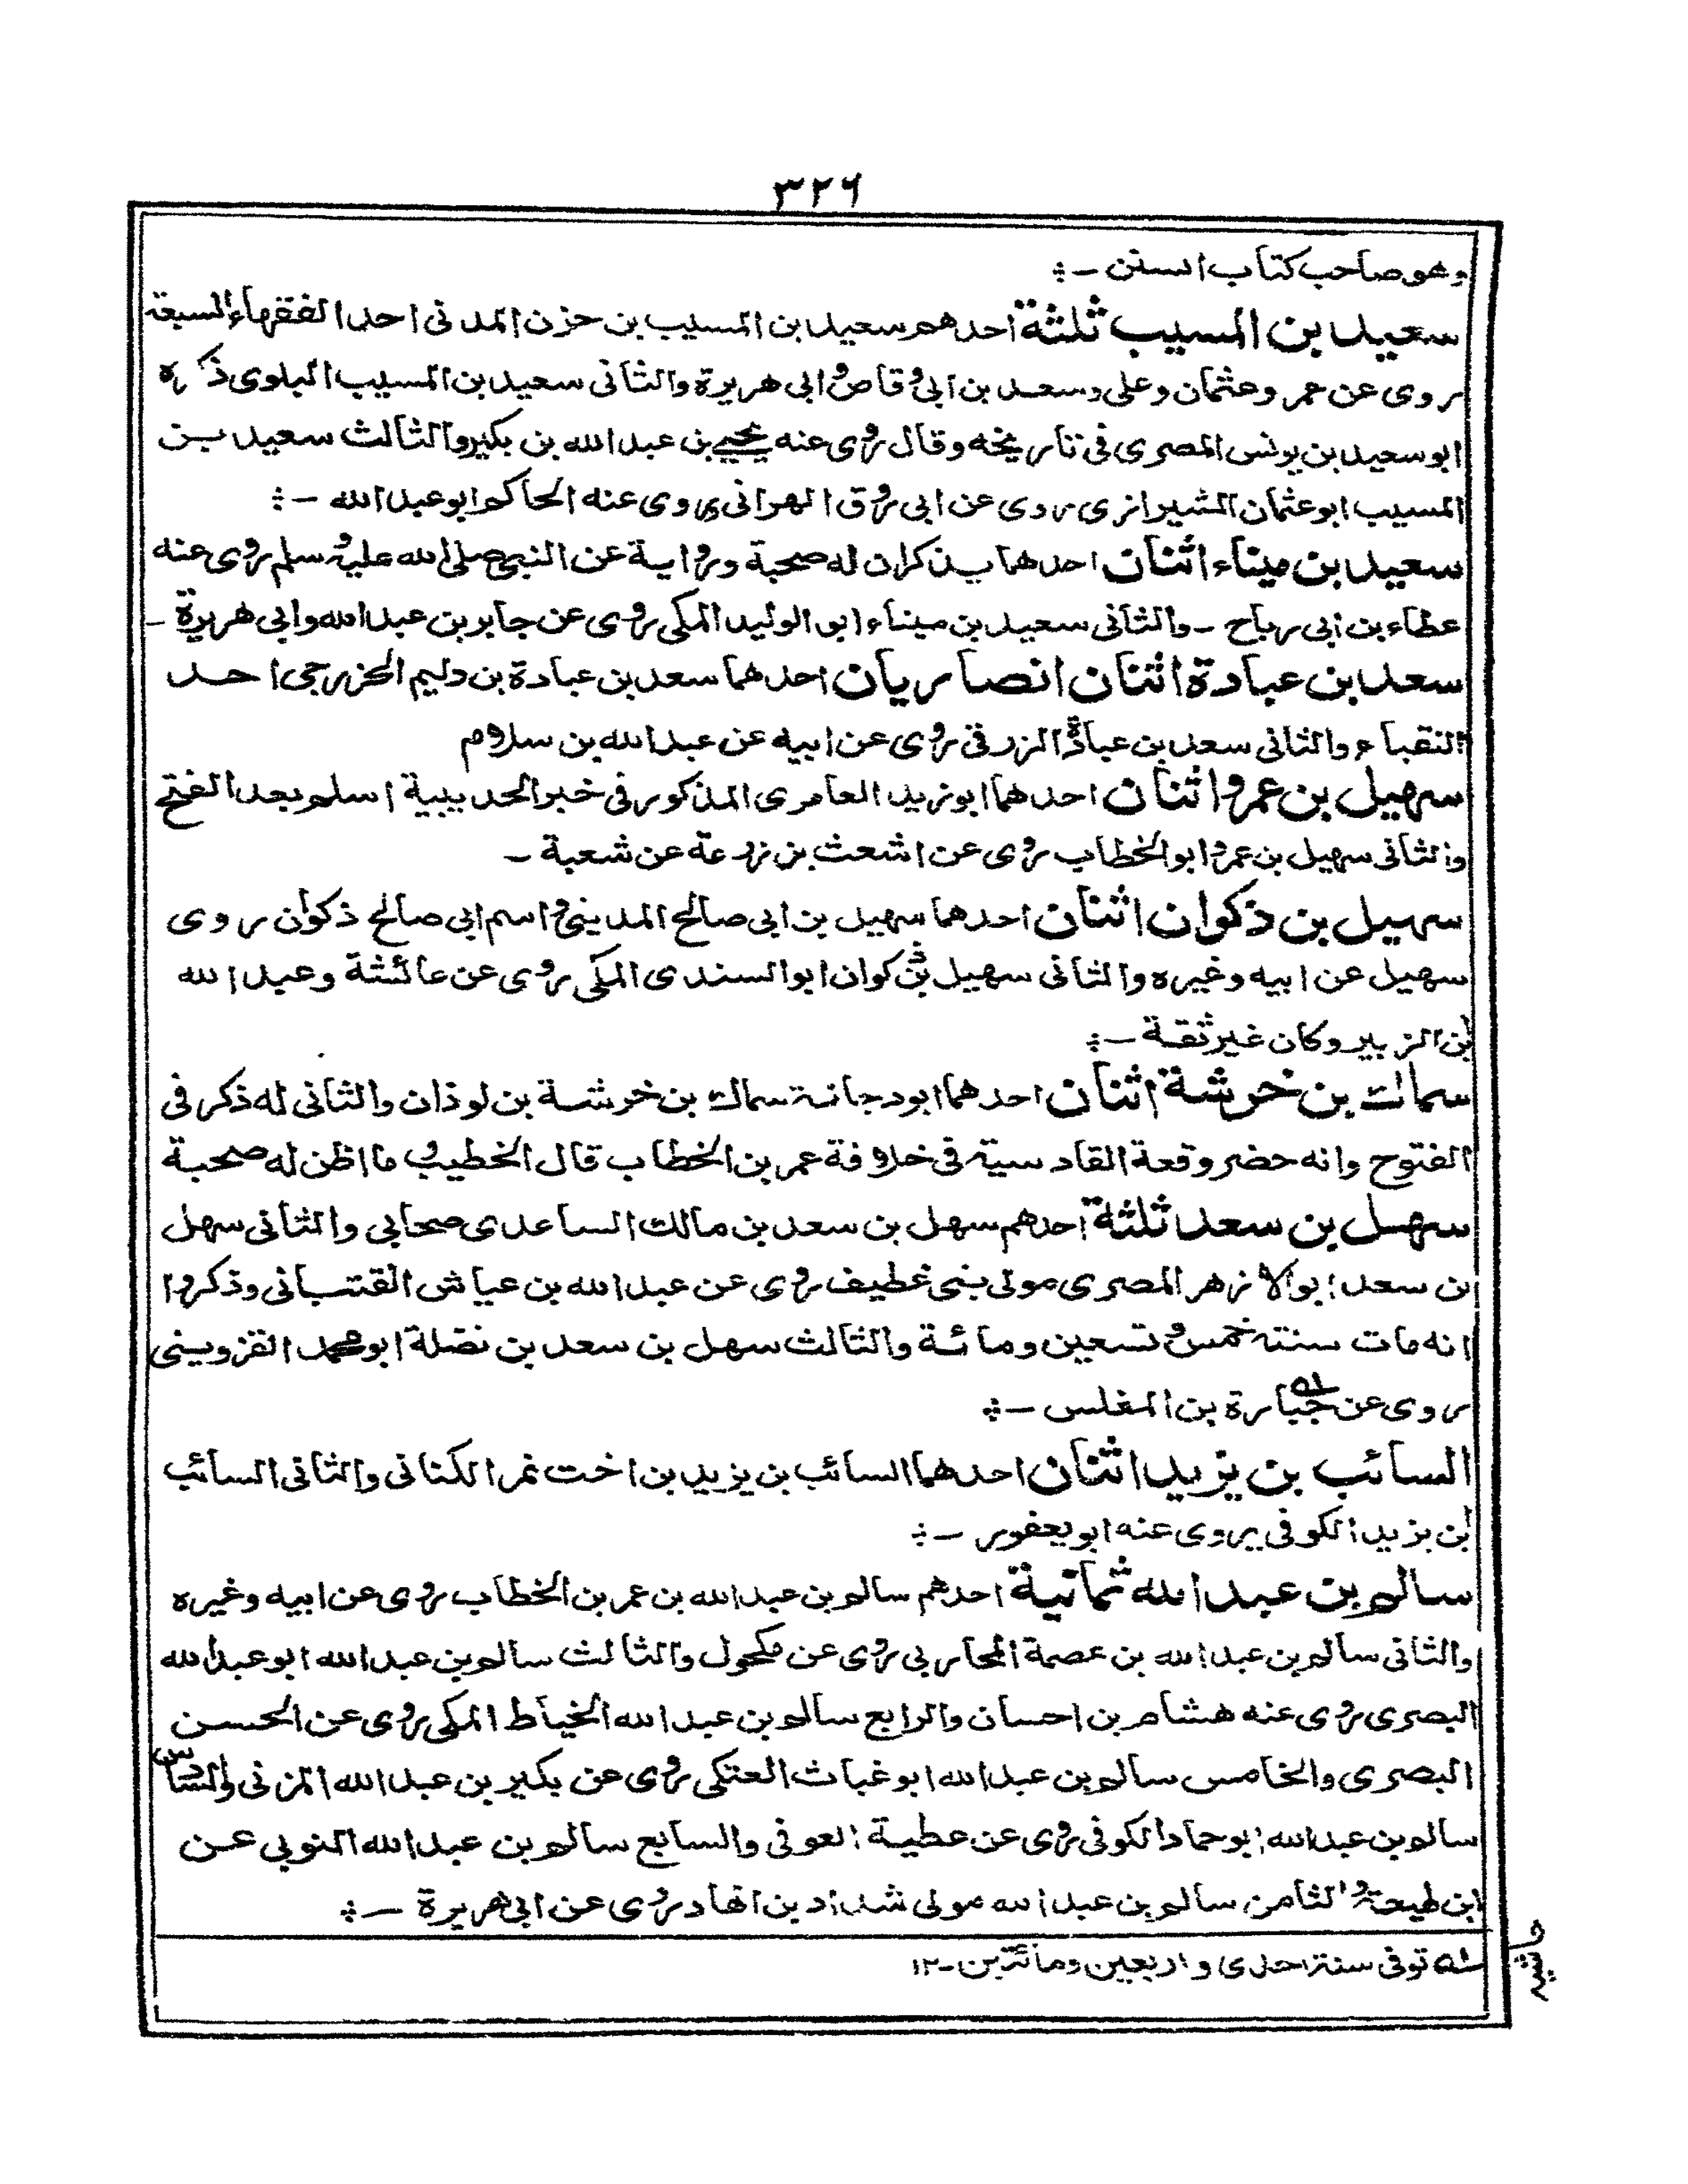 ٣٢٦
وهو صاحب كتاب السنن -
سعيد بن المسيب ثلثة احدهم سعيد بن المسيب بن حزن المدنى احد الفقهاء السبعة
روى عن عمر وعثمان وعلى وسعد بن ابى وقاص وابى هريرة والثانى سعيد بن المسيب البلوى ذكره
ابو سعيد بن يونس المصرى فى تاريخه وقال روى عنه يحيى بن عبد الله بن بكير والثالث سعيد بن
المسيب ابو عثمان الشيرازى روى عن ابى روق الهزانى روى عنه الحاكم ابو عبد الله -
سعيد بن ميناء اثنان احدهما يذكر ان له صحبة ورواية عن النبى صلى الله عليه وسلم روى عنه
عطاء بن ابى رباح - والثانى سعيد بن ميناء ابو الوليد المكى روى عن جابر بن عبد الله وابى هريرة -
سعد بن عبادة اثنان انصاريان احدهما سعد بن عبادة بن دليم الخزرجى احد
النقباء والثانى سعد بن عبادة الزرقى روى عن ابيه عن عبد الله بن سلام
سهيل بن عمرو اثنان احدهما ابو يزيد العامرى المذكور فى خبر الحديبية اسلم بعد الفتح
والثانى سهيل بن عمرو ابو الخطاب روى عن اشعث بن زرعة عن شعبة -
سهيل بن ذكوان اثنان احدهما سهيل بن ابى صالح المدينى واسم ابى صالح ذكوان روى
سهيل عن ابيه وغيره والثانى سهيل بن ذكوان ابو السندى المكى روى عن عائشة وعبد الله
بن الزبير وكان غير ثقة -
سماك بن خرشة اثنان احدهما ابو دجانة سماك بن خرشة بن لوذان والثانى له ذكر فى
الفتوح وانه حضر وقعة القادسية فى خلافة عمر بن الخطاب قال الخطيب وما اظن له صحبة
سهل بن سعد ثلثة احدهم سهل بن سعد بن مالك الساعدى صحابى والثانى سهل
بن سعد ابو الازهر المصرى مولى بنى غطيف روى عن عبد الله بن عياش القتبانى وذكروا
انه مات سنة خمس وتسعين ومائة والثالث سهل بن سعد بن نضلة ابو محمد القزوينى
روى عن جبارة له بن المغلس -
السائب بن يزيد اثنان احدهما السائب بن يزيد بن اخت نمر الكنانى والثانى السائب
بن يزيد الكوفى يروى عنه ابو يعفور -
سالم بن عبد الله ثمانية احدهم سالم بن عبد الله بن عمر بن الخطاب روى عن ابيه وغيره
والثانى سالم بن عبد الله بن عصمة المحاربى روى عن مكحول والثالث سالم بن عبد الله ابو عبد الله
البصرى روى عنه هشام بن احسان والرابع سالم بن عبد الله الخياط المكى روى عن الحسن
البصرى والخامس سالم بن عبد الله ابو غياث العتكى روى عن بكير بن عبد الله المزنى والسادس
سالم بن عبد الله ابو حماد الكوفى روى عن عطية العوفى والسابع سالم بن عبد الله النوبى عن
ابن لهيعة والثامن سالم بن عبد الله مولى شداد بن الهاد روى عن ابى هريرة -
له توفى سنة احدى واربعين ومائتين - ١٢
حاشيه